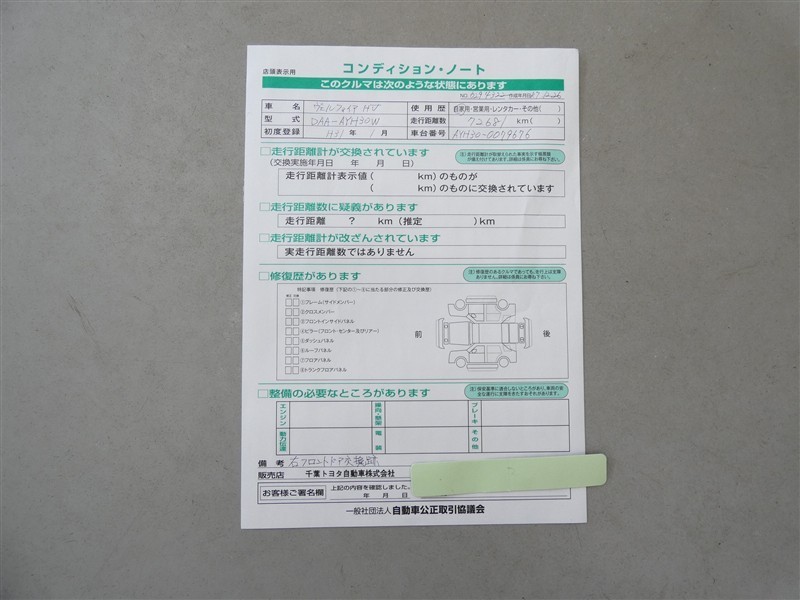 店頭表示用 コンディション・ノート
このクルマは次のような状態にあります
車名 ヴェルファイア HV 使用歴 自家用・営業用・レンタカー・その他( )
型式 DAA-AYH30W 走行距離数 72681 km( )
初度登録 H31年 1月 車台番号 AYH30-0079676
□走行距離計が交換されています
(交換実施年月日 年 月 日)
走行距離計表示値( km)のものが
( km)のものに交換されています
□走行距離数に疑義があります
走行距離 ? km(推定 )km
□走行距離計が改ざんされています
実走行距離数ではありません
□修復歴があります
特記事項 修復歴(下記の①〜⑧に当たる部分の修正及び交換歴)
①フレーム(サイドメンバー)
②クロスメンバー
③フロントインサイドパネル
④ピラー(フロント・センター及びリアー)
⑤ダッシュパネル
⑥ルーフパネル
⑦フロアパネル
⑧トランクフロアパネル
前 後
□整備の必要なところがあります
エンジン 操向・懸架 ブレーキ
動力伝達 電装 その他
備考 右フロントドア交換跡
販売店 千葉トヨタ自動車株式会社
お客様ご署名欄 上記の内容を確認しました。
年 月 日
一般社団法人 自動車公正取引協議会